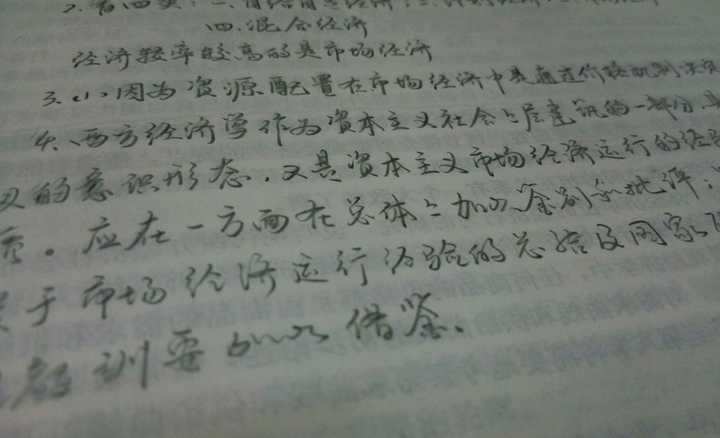 2.有四类:一.自给自足经济;二.计划经济;三.
四.混合经济
经济效率较高的是市场经济
3.(1)因为资源配置在市场经济中是通过价格机制决定
4、西方经济学作为资本主义社会上层建筑的一部分,
义的意识形态,又是资本主义市场经济运行的经验
。应在一方面在总体上加以鉴别和批评;
于市场经济运行经验的总结及国家
教训要加以借鉴.